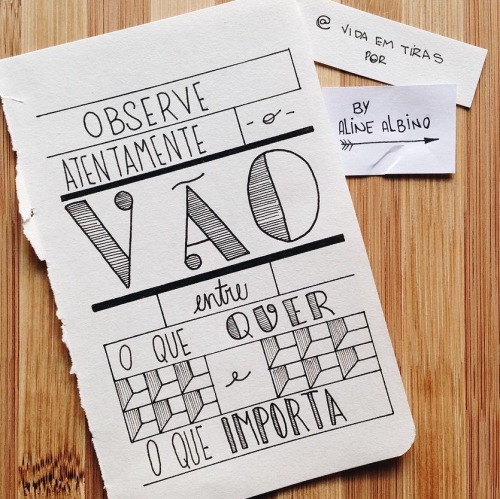 OBSERVE
ATENTAMENTE - o -
VÃO
entre
O QUE QUER
e
O QUE IMPORTA
@ VIDA EM TIRAS
POR
BY
ALINE ALBINO